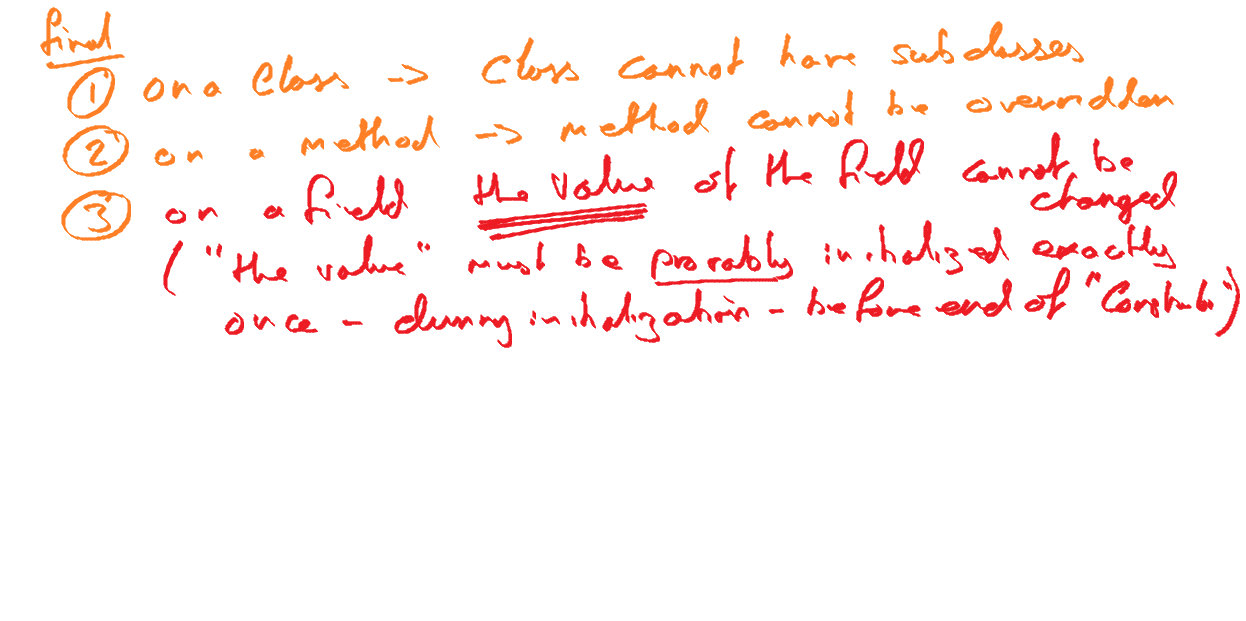 final
① on a Class -> Class cannot have subclasses
② on a method -> method cannot be overridden
③ on a field the value of the field cannot be changed
( "the value" must be provably initialized exactly
once - during initialization - before end of "Constructor")